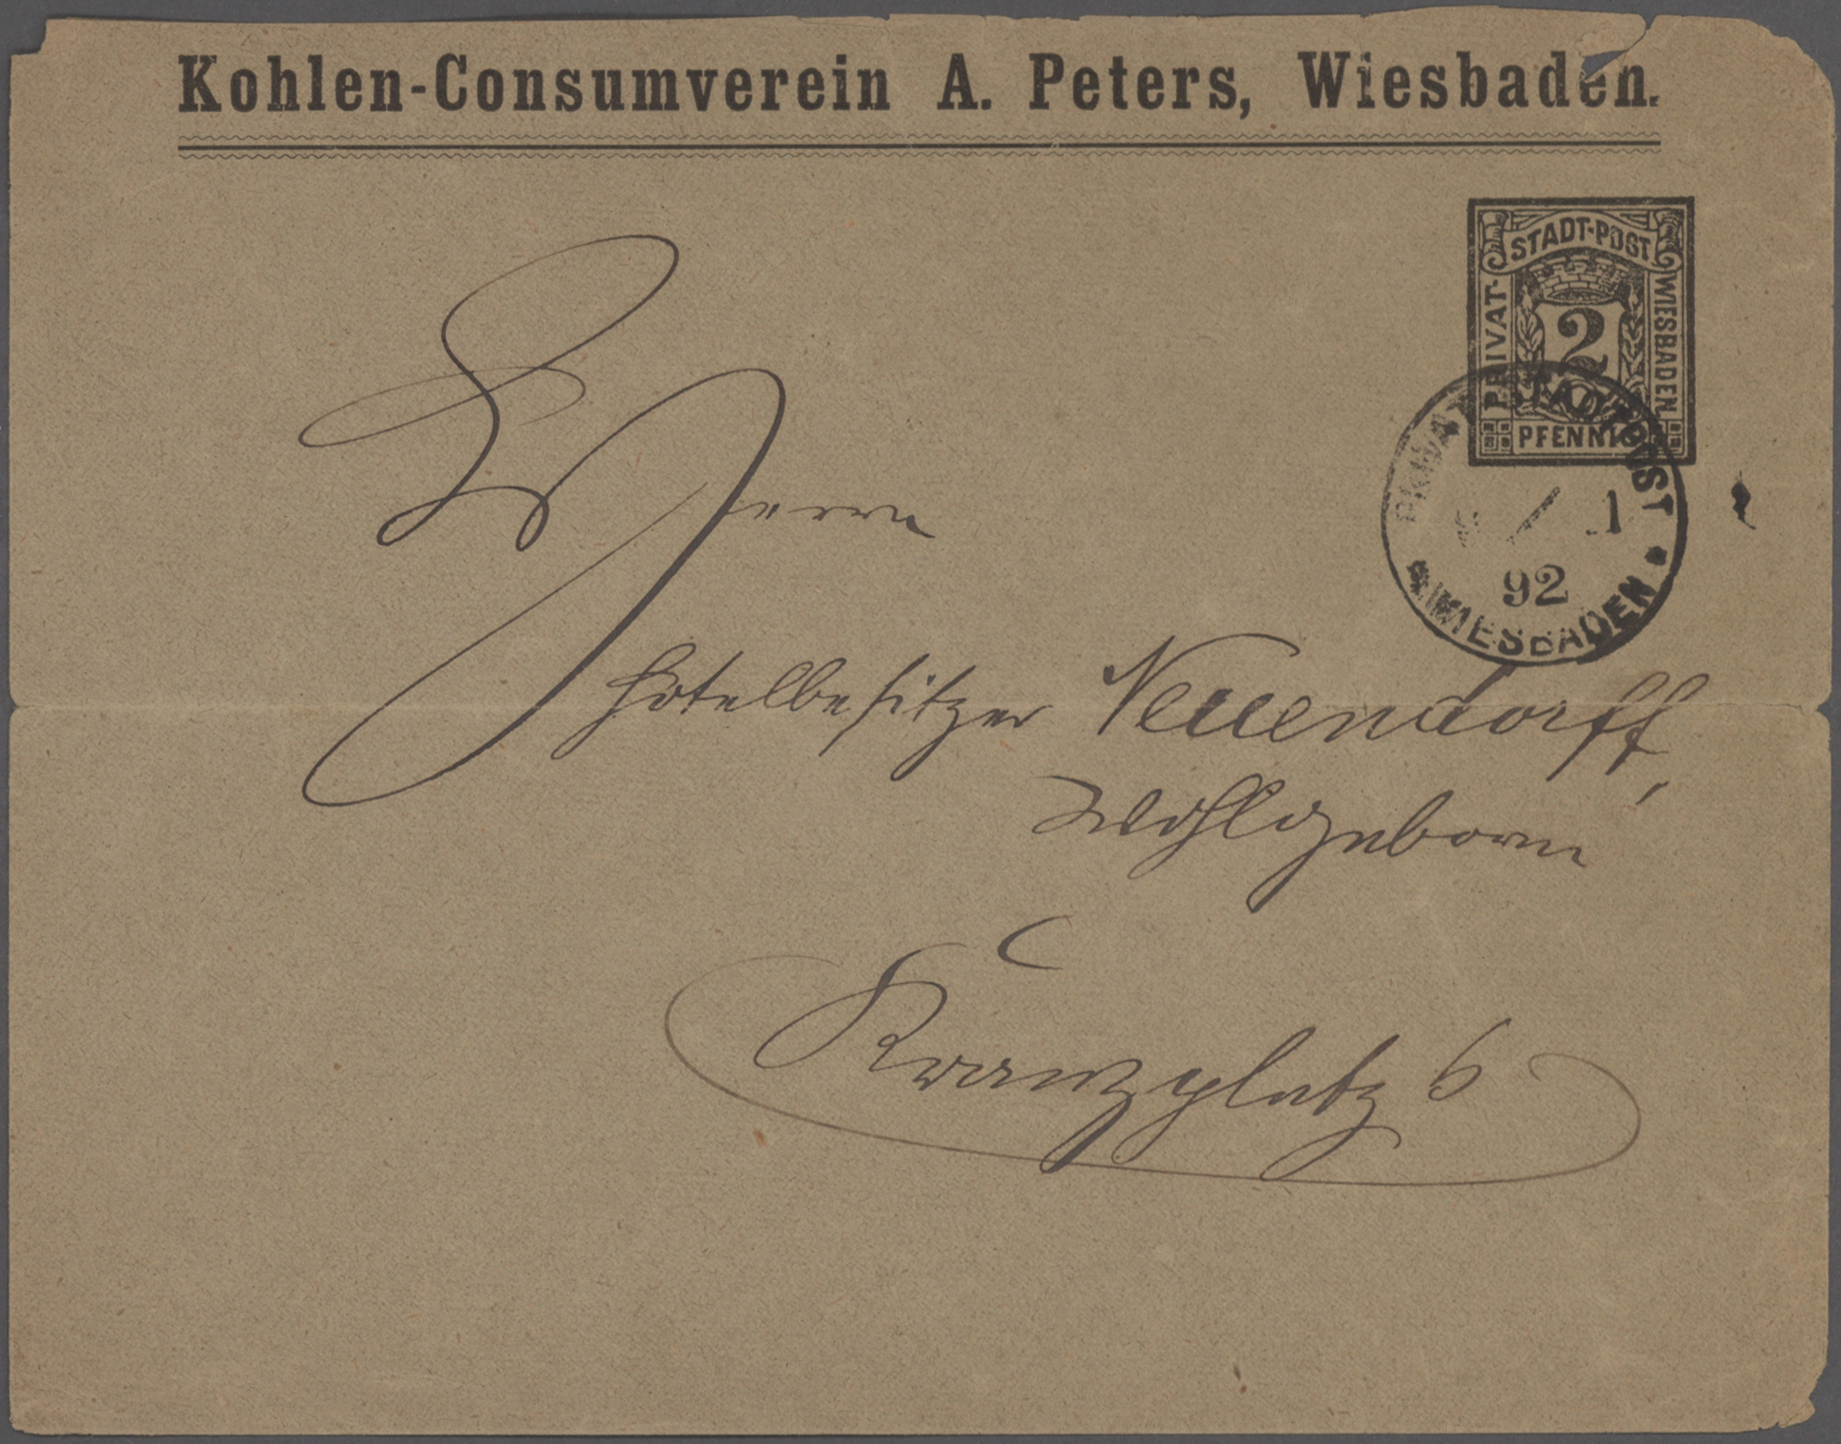 Kohlen-Consumverein A. Peters, Wiesbaden.
STADT-POST
PRIVAT-
WIESBADEN
2
PFENNIG
PRIVAT STADTPOST
/ 1
92
* WIESBADEN *
Herrn
Hotelbesitzer Neuendorff,
Wohlgeborn
Kranzplatz 6